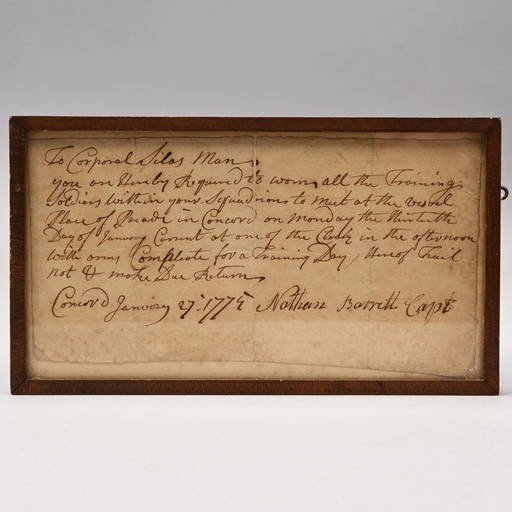 To Corporal Silas Man,
you are Hereby Required to worn all the Training
Soldiers within your Squaddrion to meet at the usual
Place of Parade in Concord on Monday the thirtieth
Day of Janury Current at one of the Clock in the afternoon
with arms Compleate for a Training Day, Hereof Frail
not & make Due Return,
Concord Janury 27: 1775 Nathan Barrett Capt